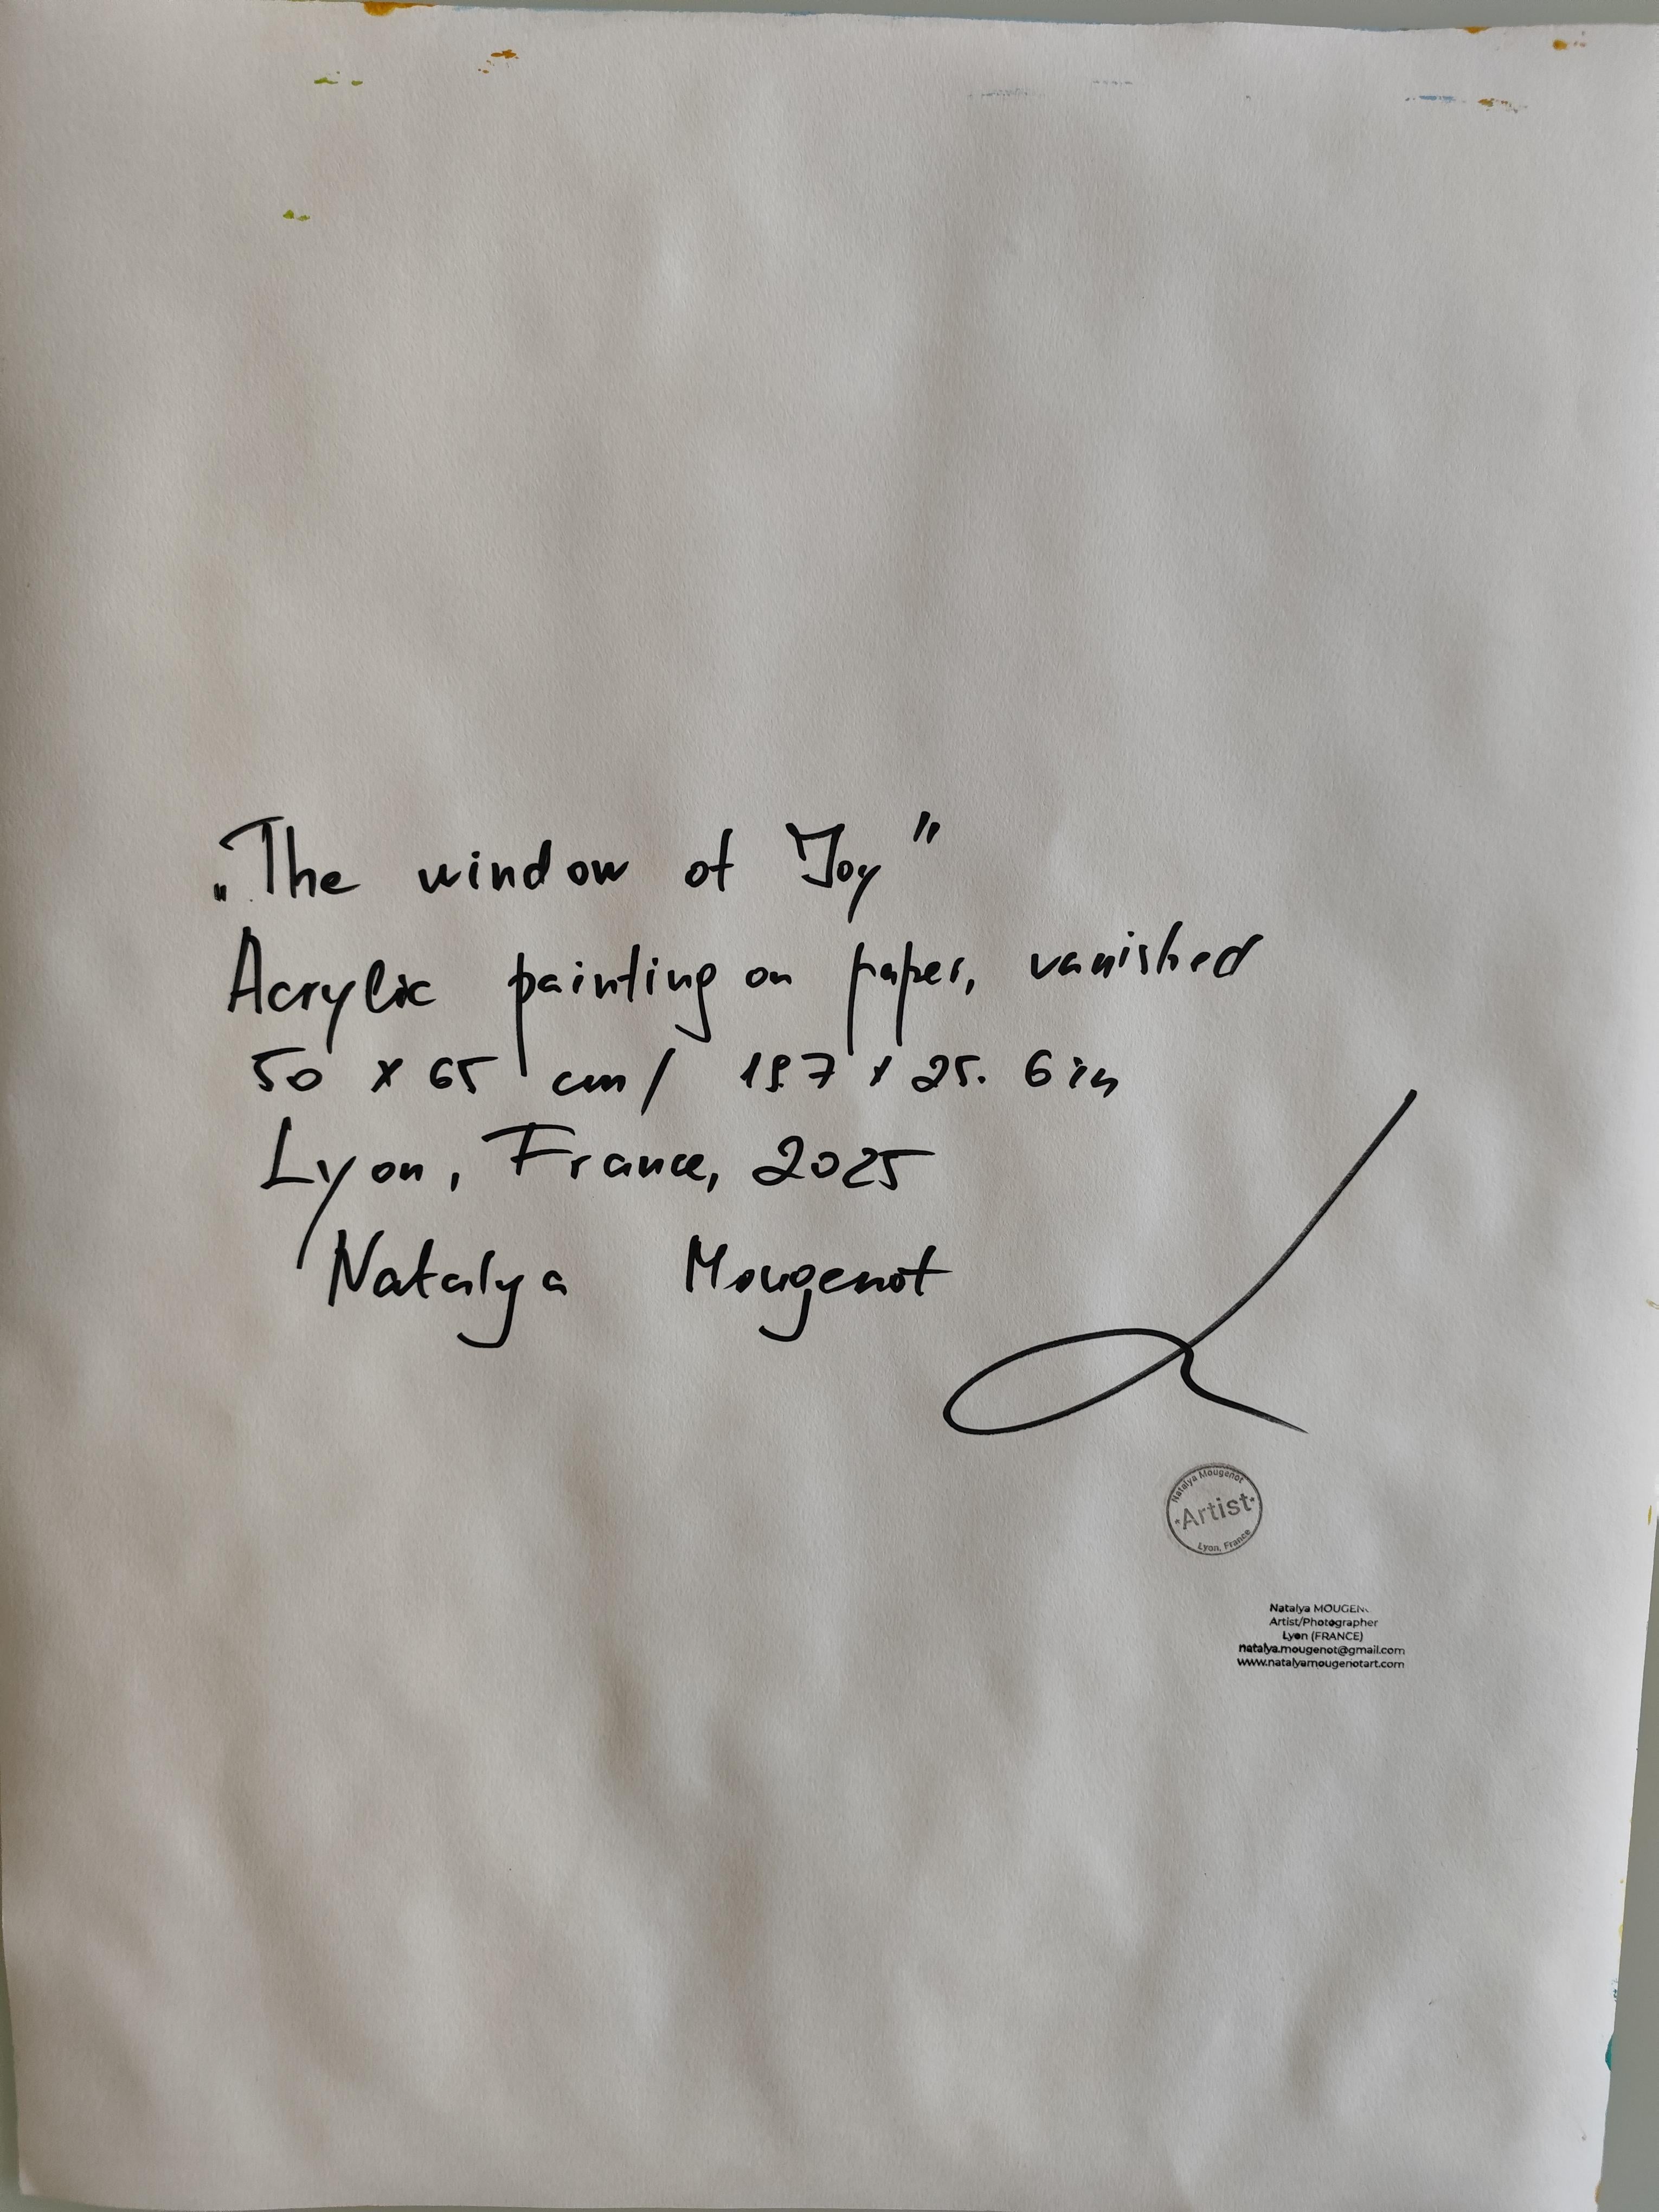 „The window of Joy”
Acrylic painting on paper, vanished
50 x 65 cm/ 19.7 x 25. 6 in
Lyon, France, 2025
Natalya Mougenot
Natalya Mougenot
Artist
Lyon, France
Natalya MOUGEN
Artist/Photographer
Lyon (FRANCE)
natalya.mougenot@gmail.com
www.natalyamougenotart.com